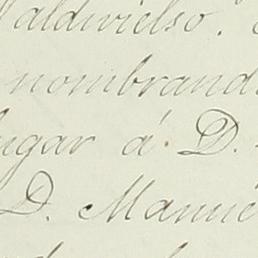 Valdivielso.
nombrand
lugar á D.
D. Manue